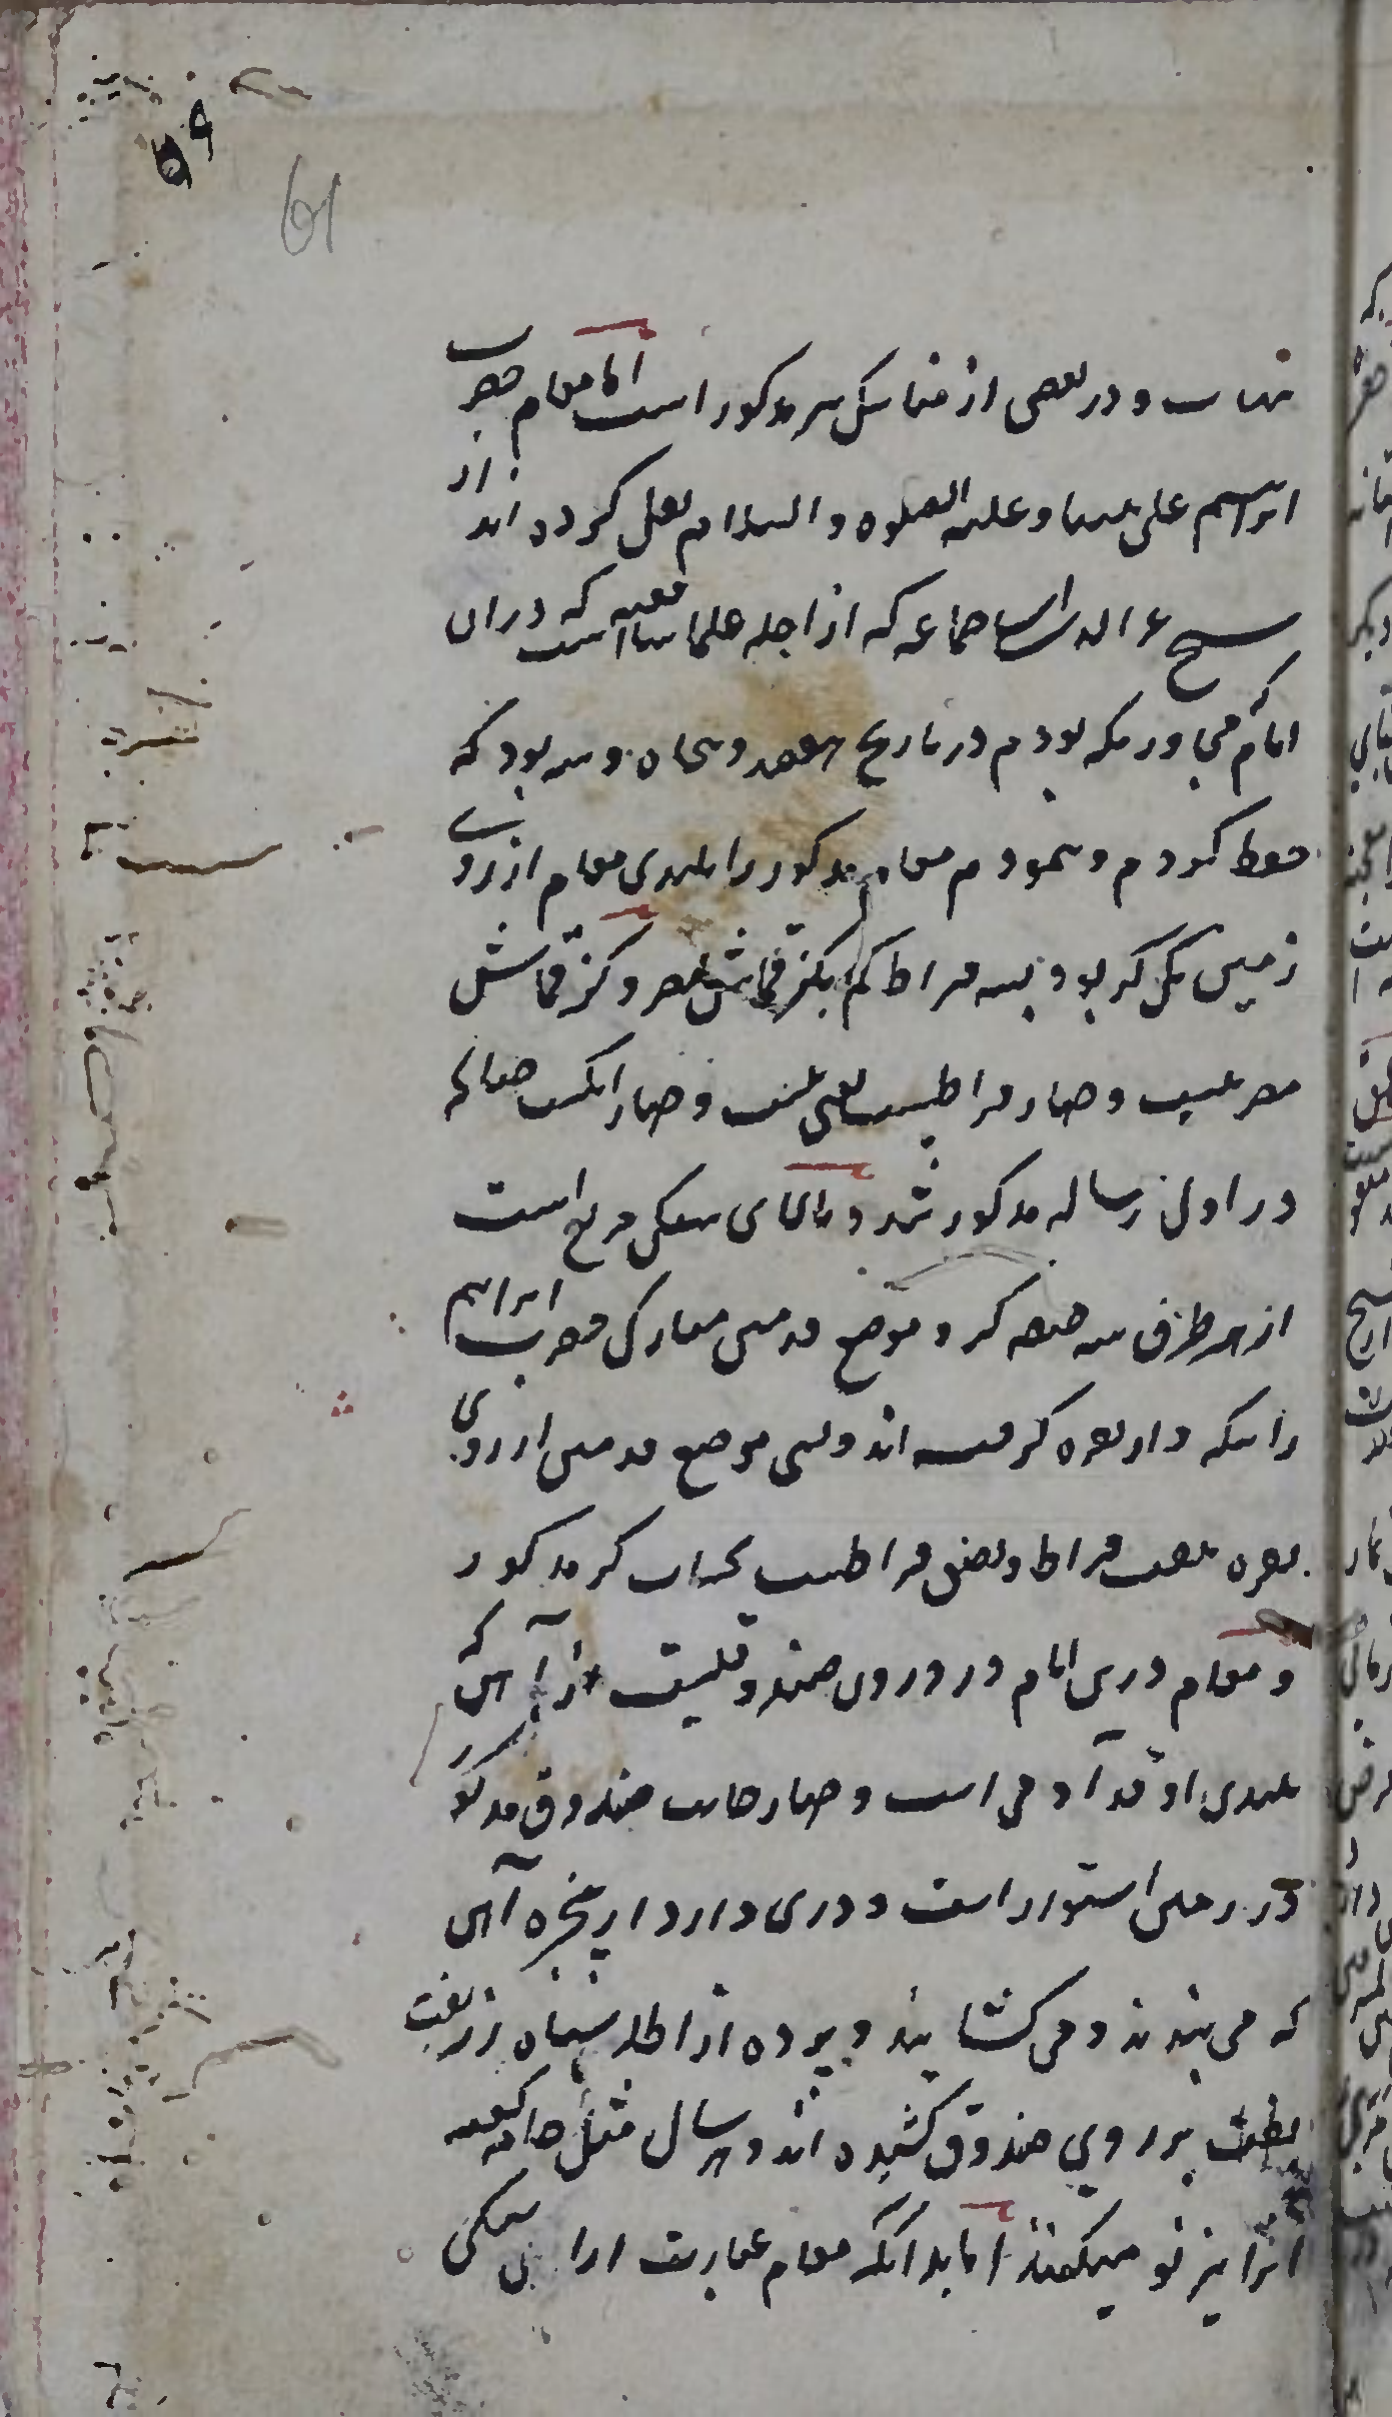 ۵۹
61
نهات و در بعضی از مناسک نیز مذکور است اما مقام حضرت
ابراهیم علی نبینا و علیه الصلوه و السلام نقل کرده اند از
شیخ عز الدین ابن جماعه که از اجله علماء شافعیه است که در آن
ایام مجاور مکه بودم در تاریخ هفصد و پنجاه و سه بود که
حفظ کردم و نمودم مقام مذکور را بلندی مقام از روی
زمین یک گز بود به سه قیراط کم بگز قماش مصر و گز قماش
مصر بیست و چهار قیراطیست یعنی بیست و چهار انگشت چنانکه
در اول رساله مذکور شد و بالای سنگی مربع است
از هر طرف سه حصه گز و موضع قدمین مبارک حضرت ابراهیم
را بنکه دار نقره گرفته اند و پستی موضع قدمین از روی
نقره هفت قیراط و نصف قیراطست بحساب گز مذکور
و مقام درین ایام در درون صندوقیست از آهن که
بلندی او قد آدمی است و چهار جانب صندوق مذکور
در زمین استوار است و دری دارد از پنجره آهن
که می بندند و می کشایند و پرده از اطلس سیاه زربفت
بر روی صندوق کشیده اند و هر سال مثل جامه کعبه
آنرا نیز نو میکنند اما بدانکه مقام عبارت از آن سنگی